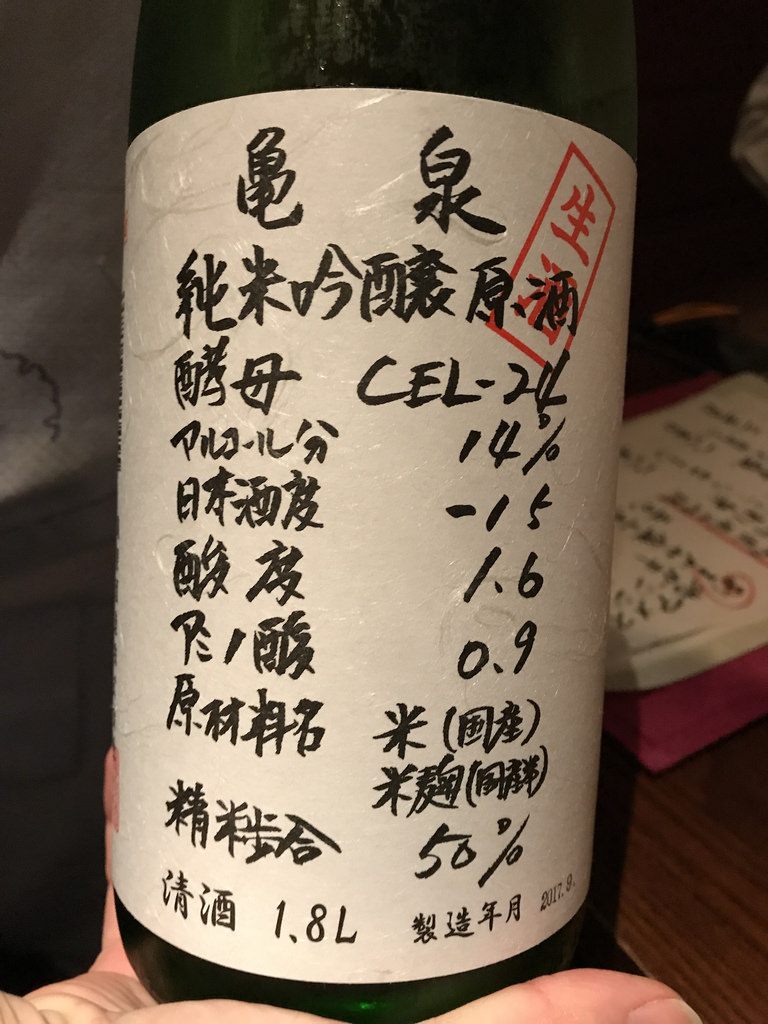 亀泉
生酒
純米吟醸原酒
酵母 CEL-24
アルコール分 14%
日本酒度 -15
酸度 1.6
アミノ酸 0.9
原材料名 米(国産)
米麹(国産米)
精米歩合 50%
清酒 1.8L 製造年月 2017.9.